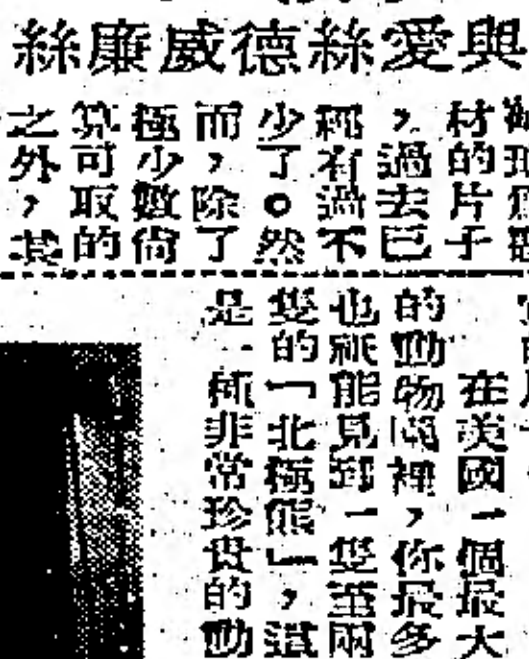 與愛絲德威廉絲
材的片子
，過去已
經有過不
少了。然
而，除了
極少數尚
算可取的
之外，其
在美國一個最大
的動物園裡，你最多
也祇能見到一隻至兩
隻的「北極熊」，這
是一種非常珍貴的動